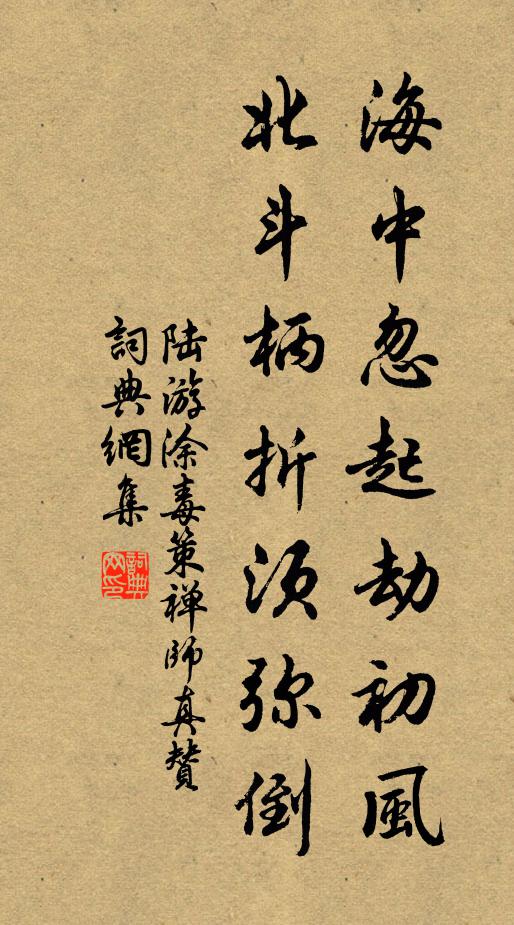 海中忽起劫初風
北斗柄折須弥倒
陆游涂毒策禅師真贊
詞典網集
詞典網印